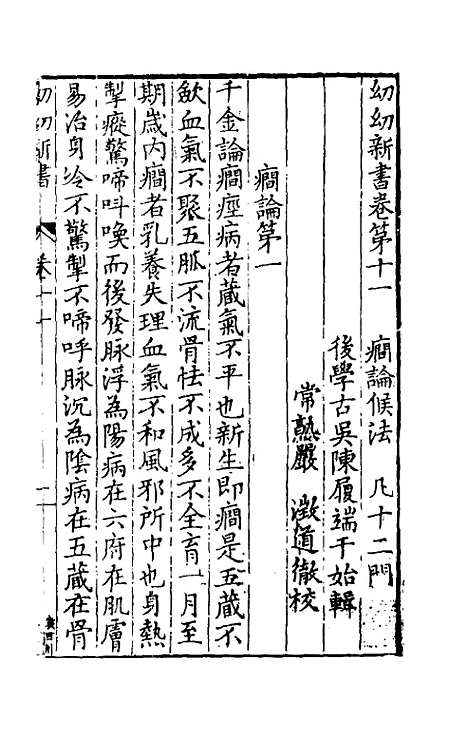 幼幼新書卷第十一　癇論候法　凡十二門
後學古吳陳履端于始輯
常熟嚴　澂道徹校
癇論第一
千金論癇痓病者蔵氣不平也新生即癇是五蔵不
歛血氣不聚五脈不流骨怯不成多不全育一月至
期歲内癇者乳養失理血氣不和風邪所中也身熱
掣瘲驚啼呌喚而後發脉浮為陽病在六府在肌膚
易治身冷不驚掣不啼呼脉沉為陰病在五蔵在骨
幼幼新書　卷十一　一